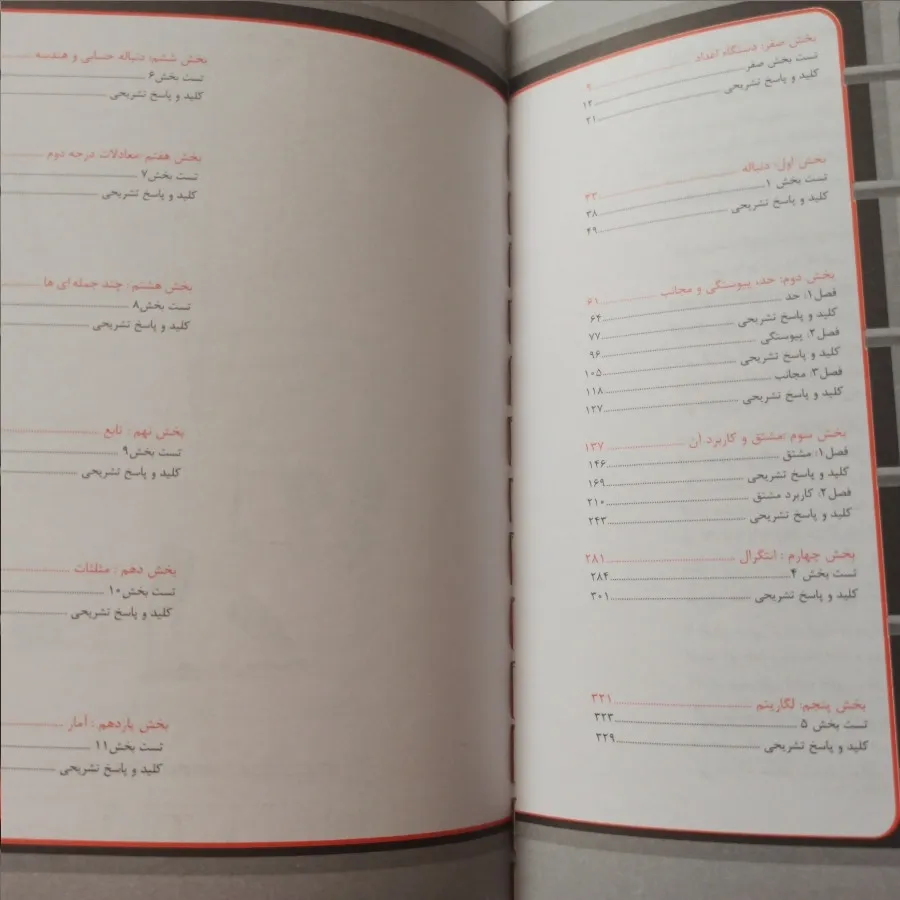 بخش صفر: دستگاه اعداد ۹
تست بخش صفر ۱۲
کلید و پاسخ تشریحی ۲۱
بخش اول: دنباله ۳۳
تست بخش ۱ ۳۸
کلید و پاسخ تشریحی ۴۹
بخش دوم: حد، پیوستگی و مجانب ۶۱
فصل۱: حد ۶۴
کلید و پاسخ تشریحی ۷۷
فصل۲: پیوستگی ۹۶
کلید و پاسخ تشریحی ۱۰۵
فصل۳: مجانب ۱۱۸
کلید و پاسخ تشریحی ۱۲۷
بخش سوم :مشتق و کاربرد آن ۱۳۷
فصل۱: مشتق ۱۴۶
کلید و پاسخ تشریحی ۱۶۹
فصل۲: کاربرد مشتق ۲۱۰
کلید و پاسخ تشریحی ۲۴۳
بخش چهارم : انتگرال ۲۸۱
تست بخش ۴ ۲۸۴
کلید و پاسخ تشریحی ۳۰۱
بخش پنجم: لگاریتم ۳۲۱
تست بخش ۵ ۳۲۳
کلید و پاسخ تشریحی ۳۲۹
بخش ششم: دنباله حسابی و هندسه
تست بخش۶
کلید و پاسخ تشریحی
بخش هفتم :معادلات درجه دوم
تست بخش۷
کلید و پاسخ تشریحی
بخش هشتم : چند جمله ای ها
تست بخش۸
کلید و پاسخ تشریحی
بخش نهم : تابع
تست بخش۹
کلید و پاسخ تشریحی
بخش دهم : مثلثات
تست بخش۱۰
کلید و پاسخ تشریحی
بخش یازدهم : آمار
تست بخش۱۱
کلید و پاسخ تشریحی